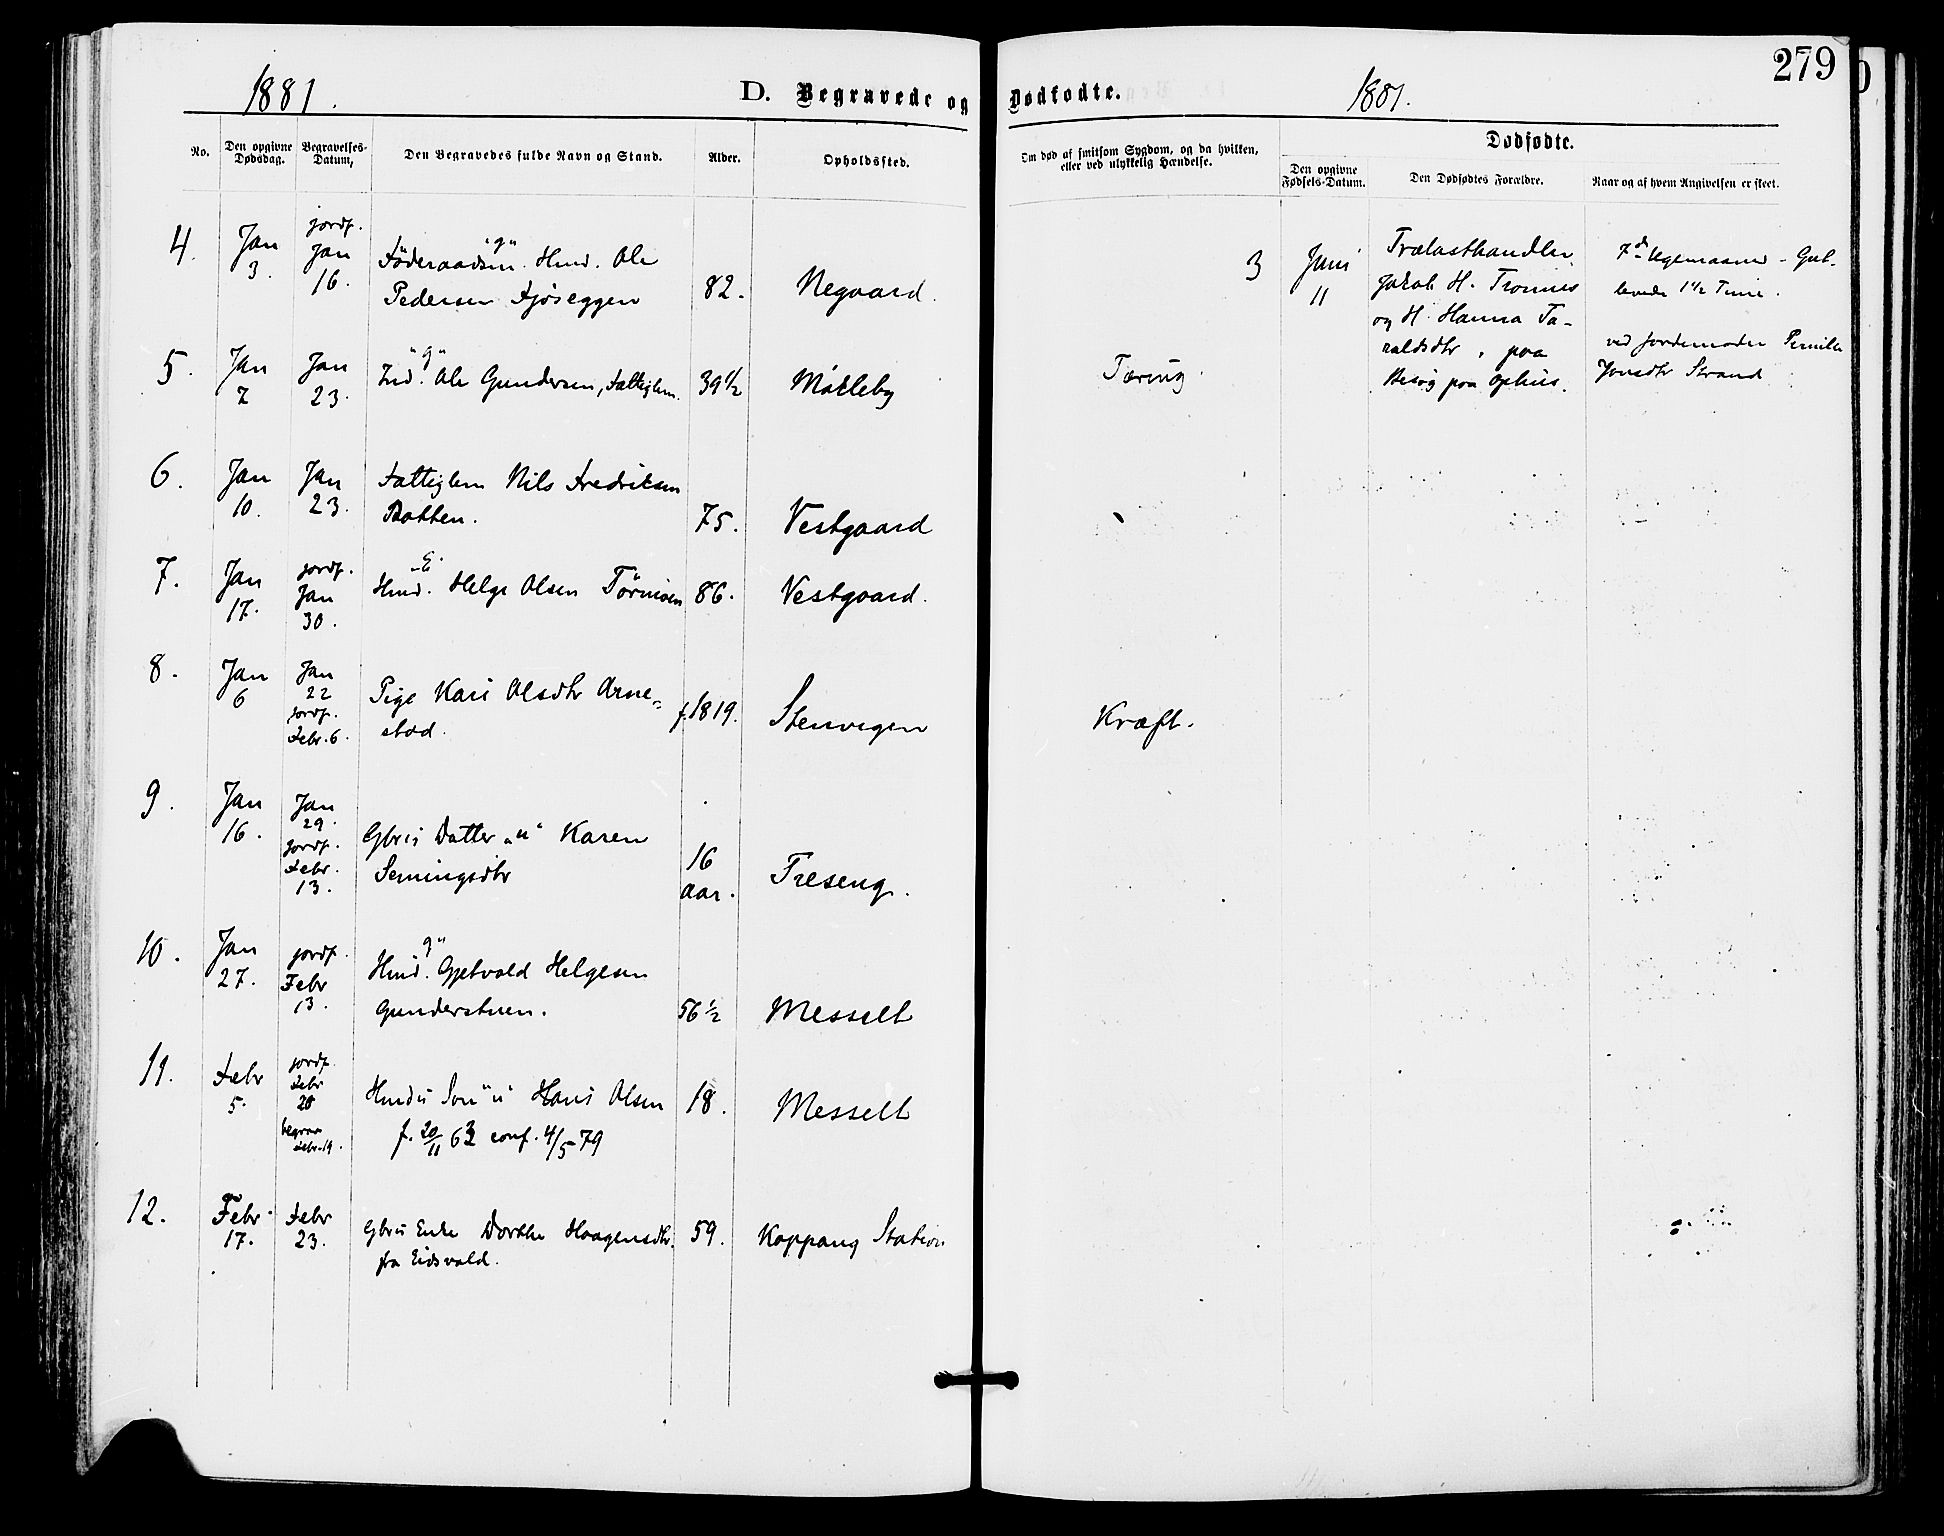 279
1881.
D. Begravede og Dødfødte.
1881.
No.
Den opgivne Dødsdag.
Begravelses-Datum,
Den Begravedes fulde Navn og Stand.
Alder.
Opholdssted.
Om død af smitsom Sygdom, og da hvilken,
eller ved ulykkelig Hændelse.
Dødfødte.
Den opgivne Fødsels-Datum.
Den Dødfødtes Forældre.
Naar og af hvem Angivelsen er skeet.
4.
Jan
3.
jordf.
Jan
16.
"g"
Föderaadsm. Hmd. Ole
Pedersen Fjøseggen
82.
Negaard.
5.
Jan
7
Jan
23.
"g"
Ind. Ole Gundersen, Fattiglem.
39 1/2
Møkleby
Tæring.
6.
Jan
10.
Jan
23.
Fattiglem Nils Fredriksen
Batten.
75.
Vestgaard
7.
Jan
17.
jordf.
Jan
30.
"E"
Hmd. Helge Olsen Törmoen
86.
Vestgaard.
8.
Jan
6
Jan
22
jordf.
Febr. 6.
Pige Kari Olsdtr Arne-
stad.
f. 1819.
Stenvigen
Kræft.
9.
Jan
16.
Jan
29.
jordf.
Febr.
13.
Gbr:s Datter "u" Karen
Semingsdtr
16
Aar.
Træseng.
10.
Jan
27.
jordf.
Febr
13.
"g"
Hmd. Gjetvold Helgesen
Gunderstuen.
56 1/2
Messelt
11.
Febr
5.
jordf
Febr
20
begrav
Febr. 19.
Hmds Søn "u" Hans Olsen
f. 20/11 62 conf. 4/5 79
18.
Messelt
12.
Febr.
17.
Febr
23.
Gbr:s Enke Dorthe Haagensdtr.
fra Eidsvold.
59.
Koppang Station
3
Juni
11
Trælasthandler
Jakob H. Tronnes
og H. Hanna Ta-
raldsdtr, paa
Besøg paa Ophus.
7de Ugemaaned - Gut
levede 1 1/2 Time.
ved Jordemoder Pernille
Jonsdtr Strand